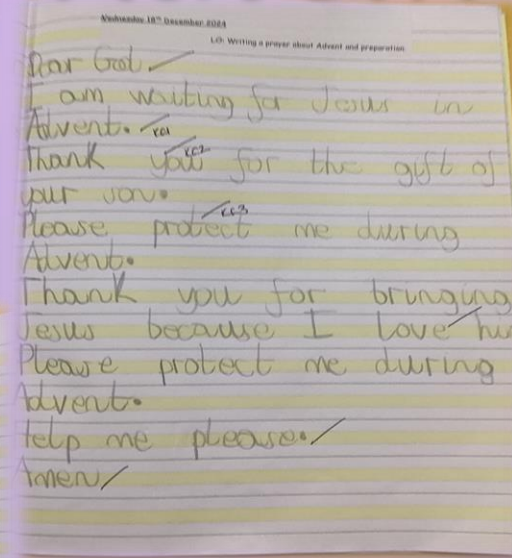 Wednesday 18th December 2024
LO: Writing a prayer about Advent and preparation
Dear God
I am waiting for Jesus in
Advent. KC1
Thank you KC2 for the gift of
your son.
Please protect KC3 me during
Advent.
Thank you for bringing
Jesus because I love hi
Please protect me during
Advent.
Help me please.
Amen